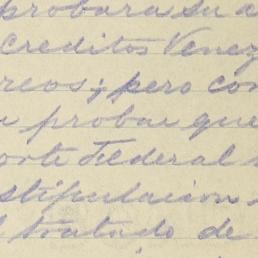 probara su
Creditos Venez
reos; pero con
probar que
orte Federal
stipulacion
tratado de